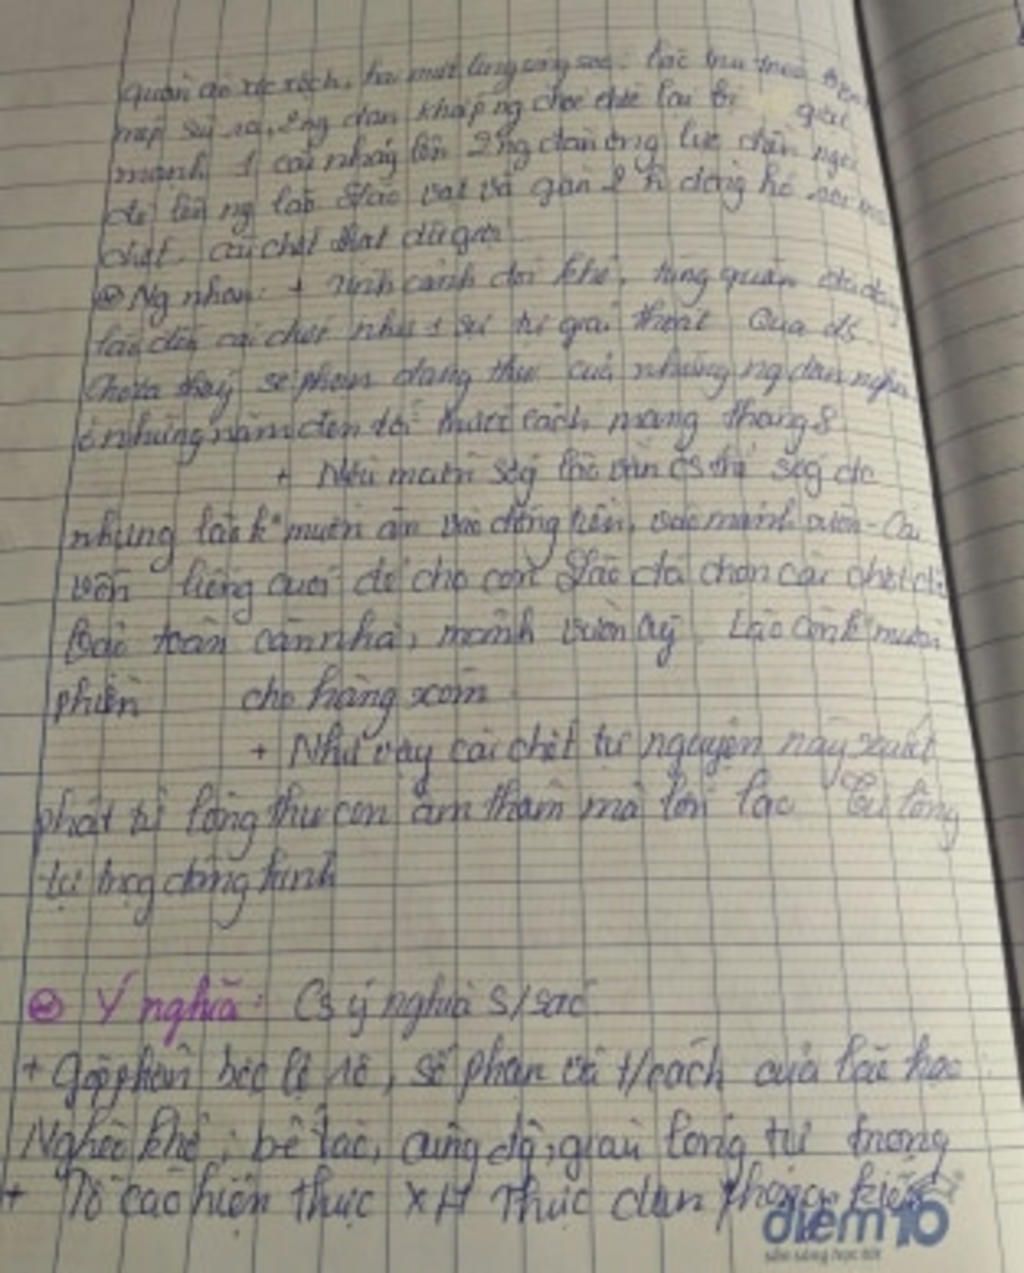 quần áo xộc xệch, hai mắt long sòng sọc. Lão tru tréo, bọt
mép sùi ra, ng chốc chốc lại bị giật
mạnh 1 cái nhảy lên 2 ng đàn ông lực
đè lên ng lão Lão vật vã gần 2 h đồng hồ
chết. cái chết thật dữ gội
Ng nhân: + tình cảnh đói khổ, túng quẩn
lão đến cái chết như 1 sự tự giải thoát Qua đó
thấy số phận đáng thg của những ng dân nghèo
ở những năm đen tối trước cách mạng tháng 8
+ Nếu
nhưng lão k muốn ăn vào đồng tiền, vào mảnh vườn - Cái
vốn liếng cuối để cho con Lão đã chọn cái chết để
bảo toàn căn nhà, mảnh vườn ấy. Lão còn k muốn
phiền cho hàng xóm
+ Như vậy cái chết tự nguyện này xuất
phát từ lòng thg con âm thầm mà lớn lao Từ lòng
tự trọg đáng kính
Ý nghĩa: Cs ý nghĩa s/sắc
+ Góp phần bộc lộ rõ, số phận và t/cách của lão hạc
Nghèo khổ, bế tắc, cùng độ, giàu lòng tự trọng
+ Tố cáo hiện thực XH Thực dân phong kiến
điểm 10
sẵn sàng học tốt